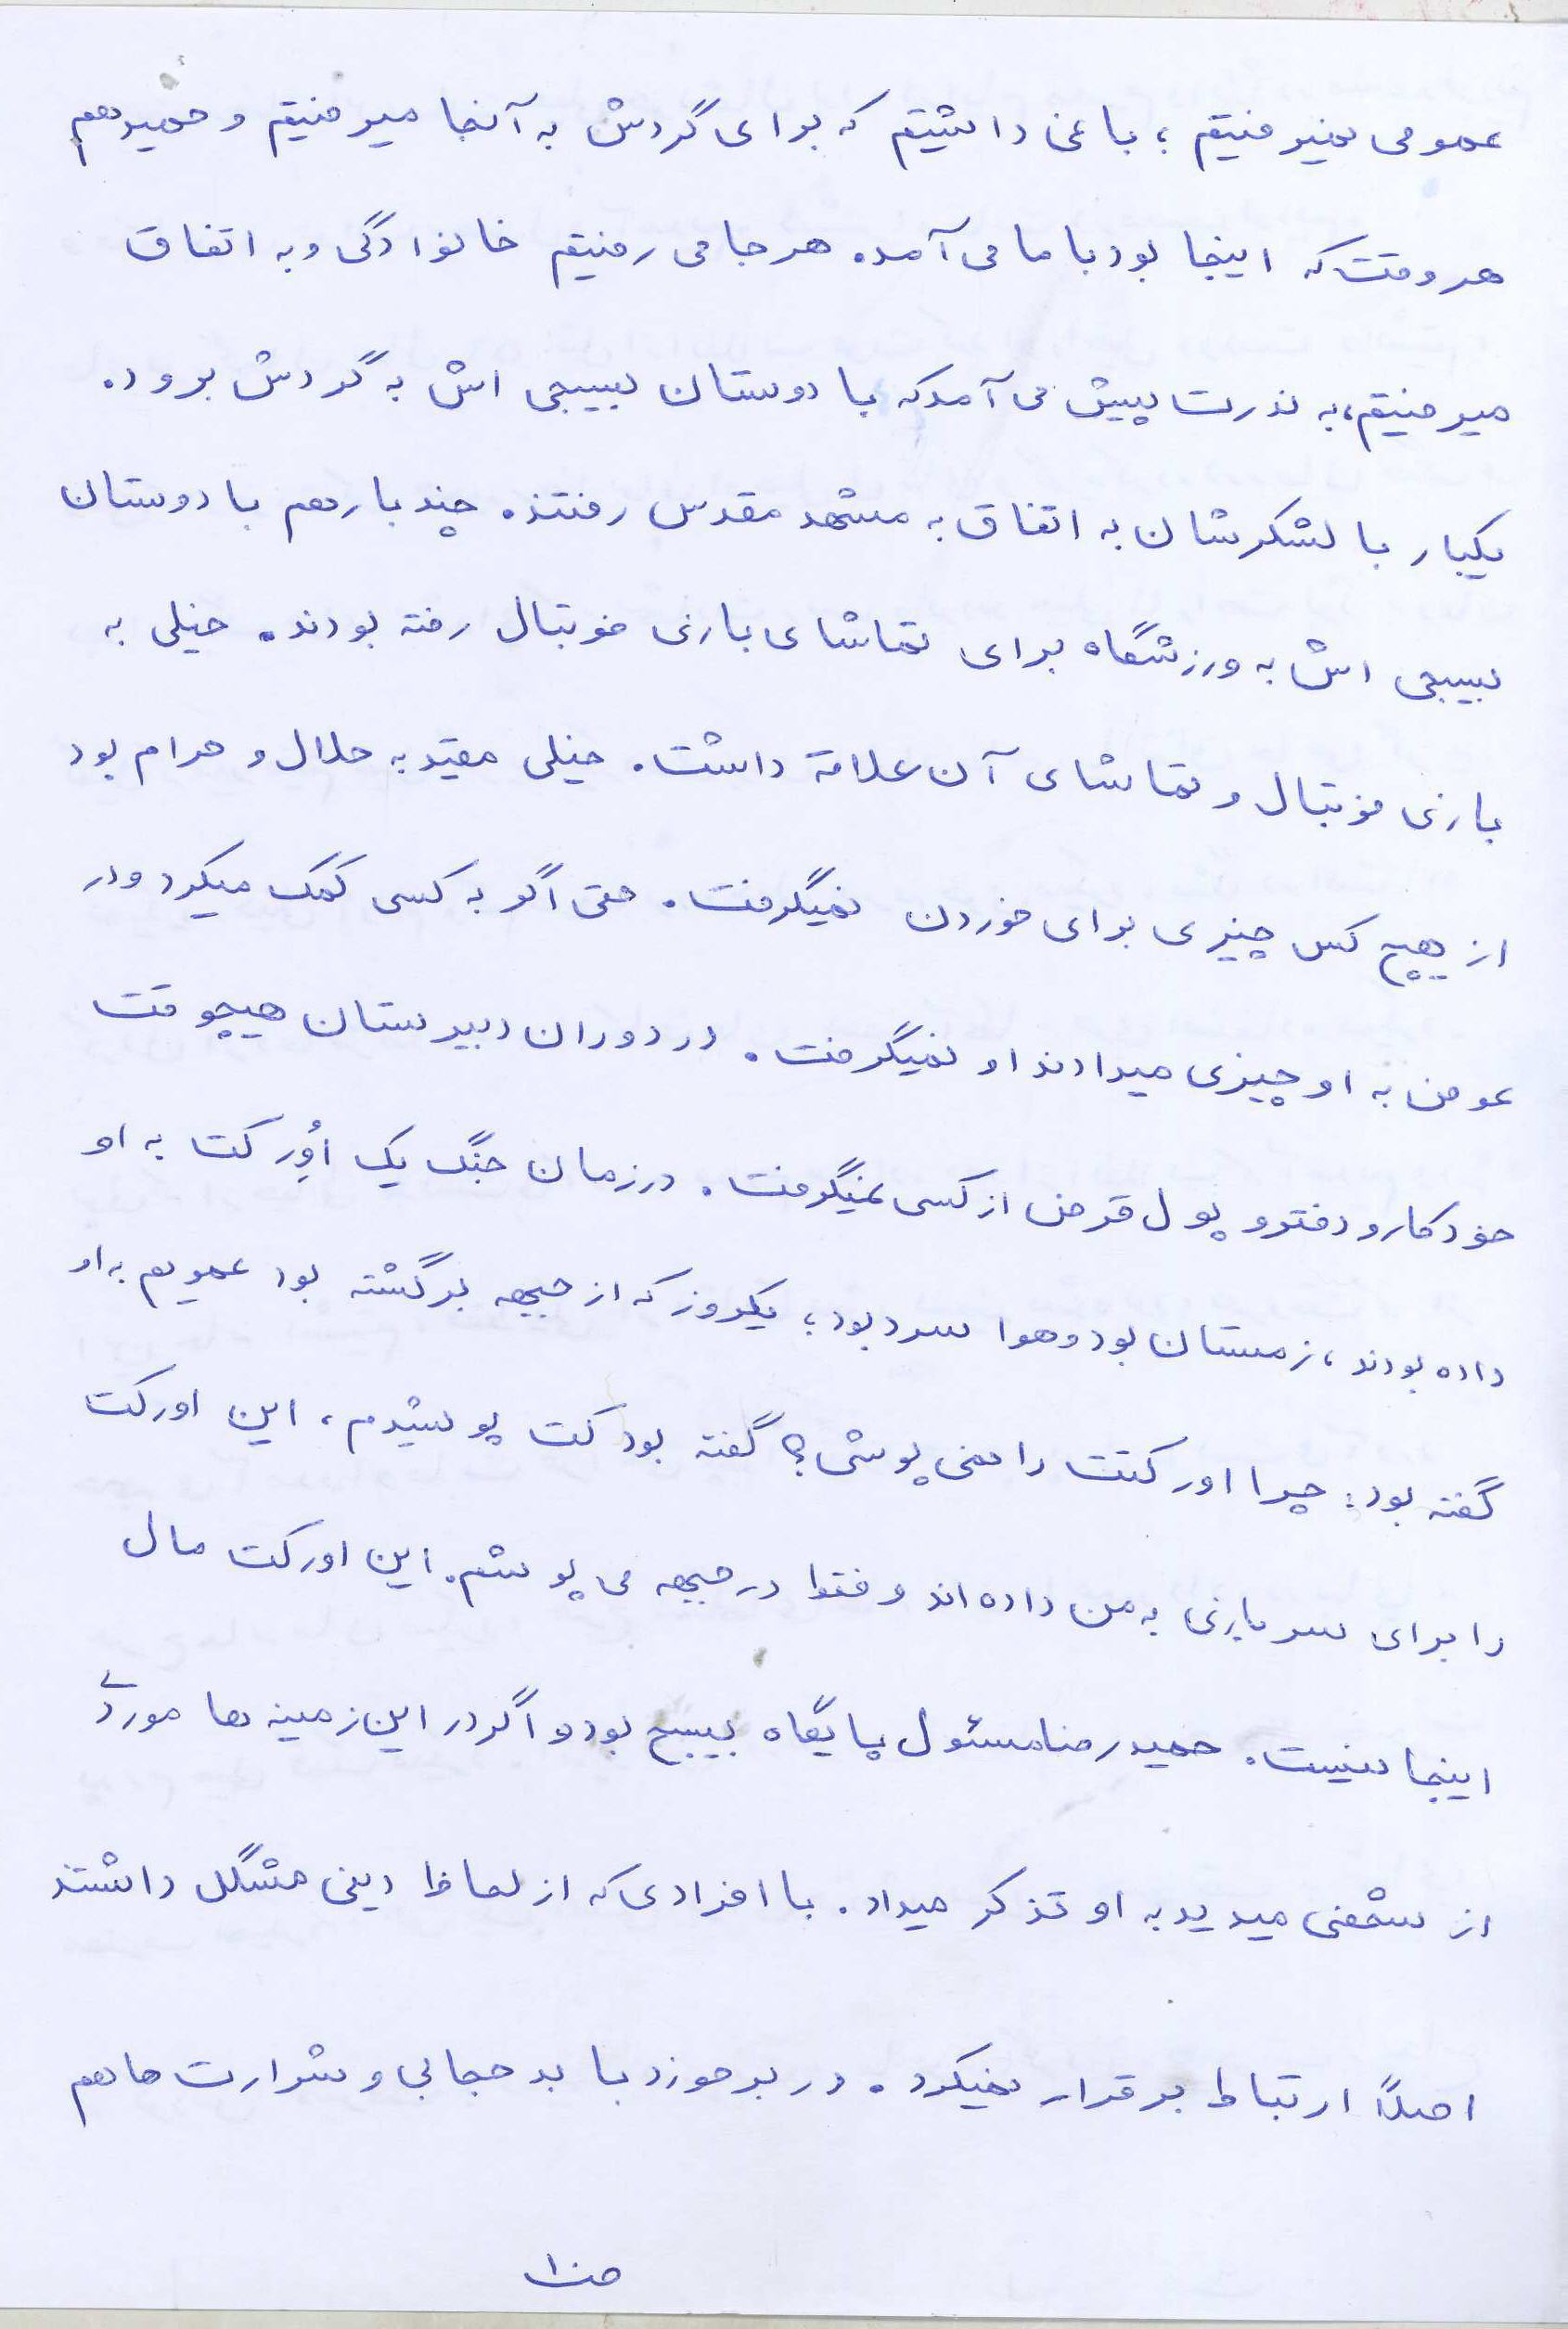 عمومی نمیرفتیم ؛ باغی داشتیم که برای گردش به آنجا میرفتیم و حمید هم
هر وقت که اینجا بود با ما می آمد. هر جا می رفتیم خانوادگی و به اتفاق
میرفتیم، به ندرت پیش می آمد که با دوستان بسیجی اش به گردش برود.
یکبار با لشکرشان به اتفاق به مشهد مقدس رفتند. چند بار هم با دوستان
بسیجی اش به ورزشگاه برای تماشای بازی فوتبال رفته بودند. خیلی به
بازی فوتبال و تماشای آن علاقه داشت. خیلی مقیّد به حلال و حرام بود
از هیچ کس چیزی برای خوردن نمیگرفت. حتی اگر به کسی کمک میکرد و در
عوض به او چیزی میدادند او نمیگرفت. در دوران دبیرستان هیچوقت
خودکار و دفتر و پول قرض از کسی نمیگرفت. در زمان جنگ یک اوُرِکت به او
داده بودند، زمستان بود و هوا سرد بود؛ یکروز که از جبهه برگشته بود عمویم به او
گفته بود: چرا اورکتت را نمی پوشی؟ گفته بود کت پوشیدم، این اورکت
را برای سربازی به من داده اند و فقط در جبهه می پوشم. این اورکت مال
اینجا نیست. حمیدرضا مسئول پایگاه بسیج بود و اگر در این زمینه ها موردی
از شخصی میدید به او تذکر میداد. با افرادی که از لحاظ دینی مشگل داشتند
اصلاً ارتباط برقرار نمیکرد. در برخورد با بد حجابی و شرارت ها هم
ص۱۰